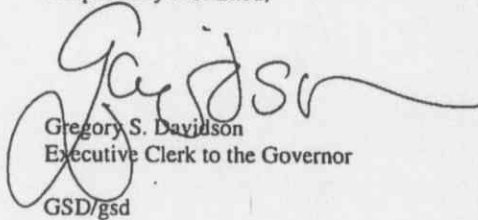 Gregory S. Davidson
Executive Clerk to the Governor
GSD/gsd